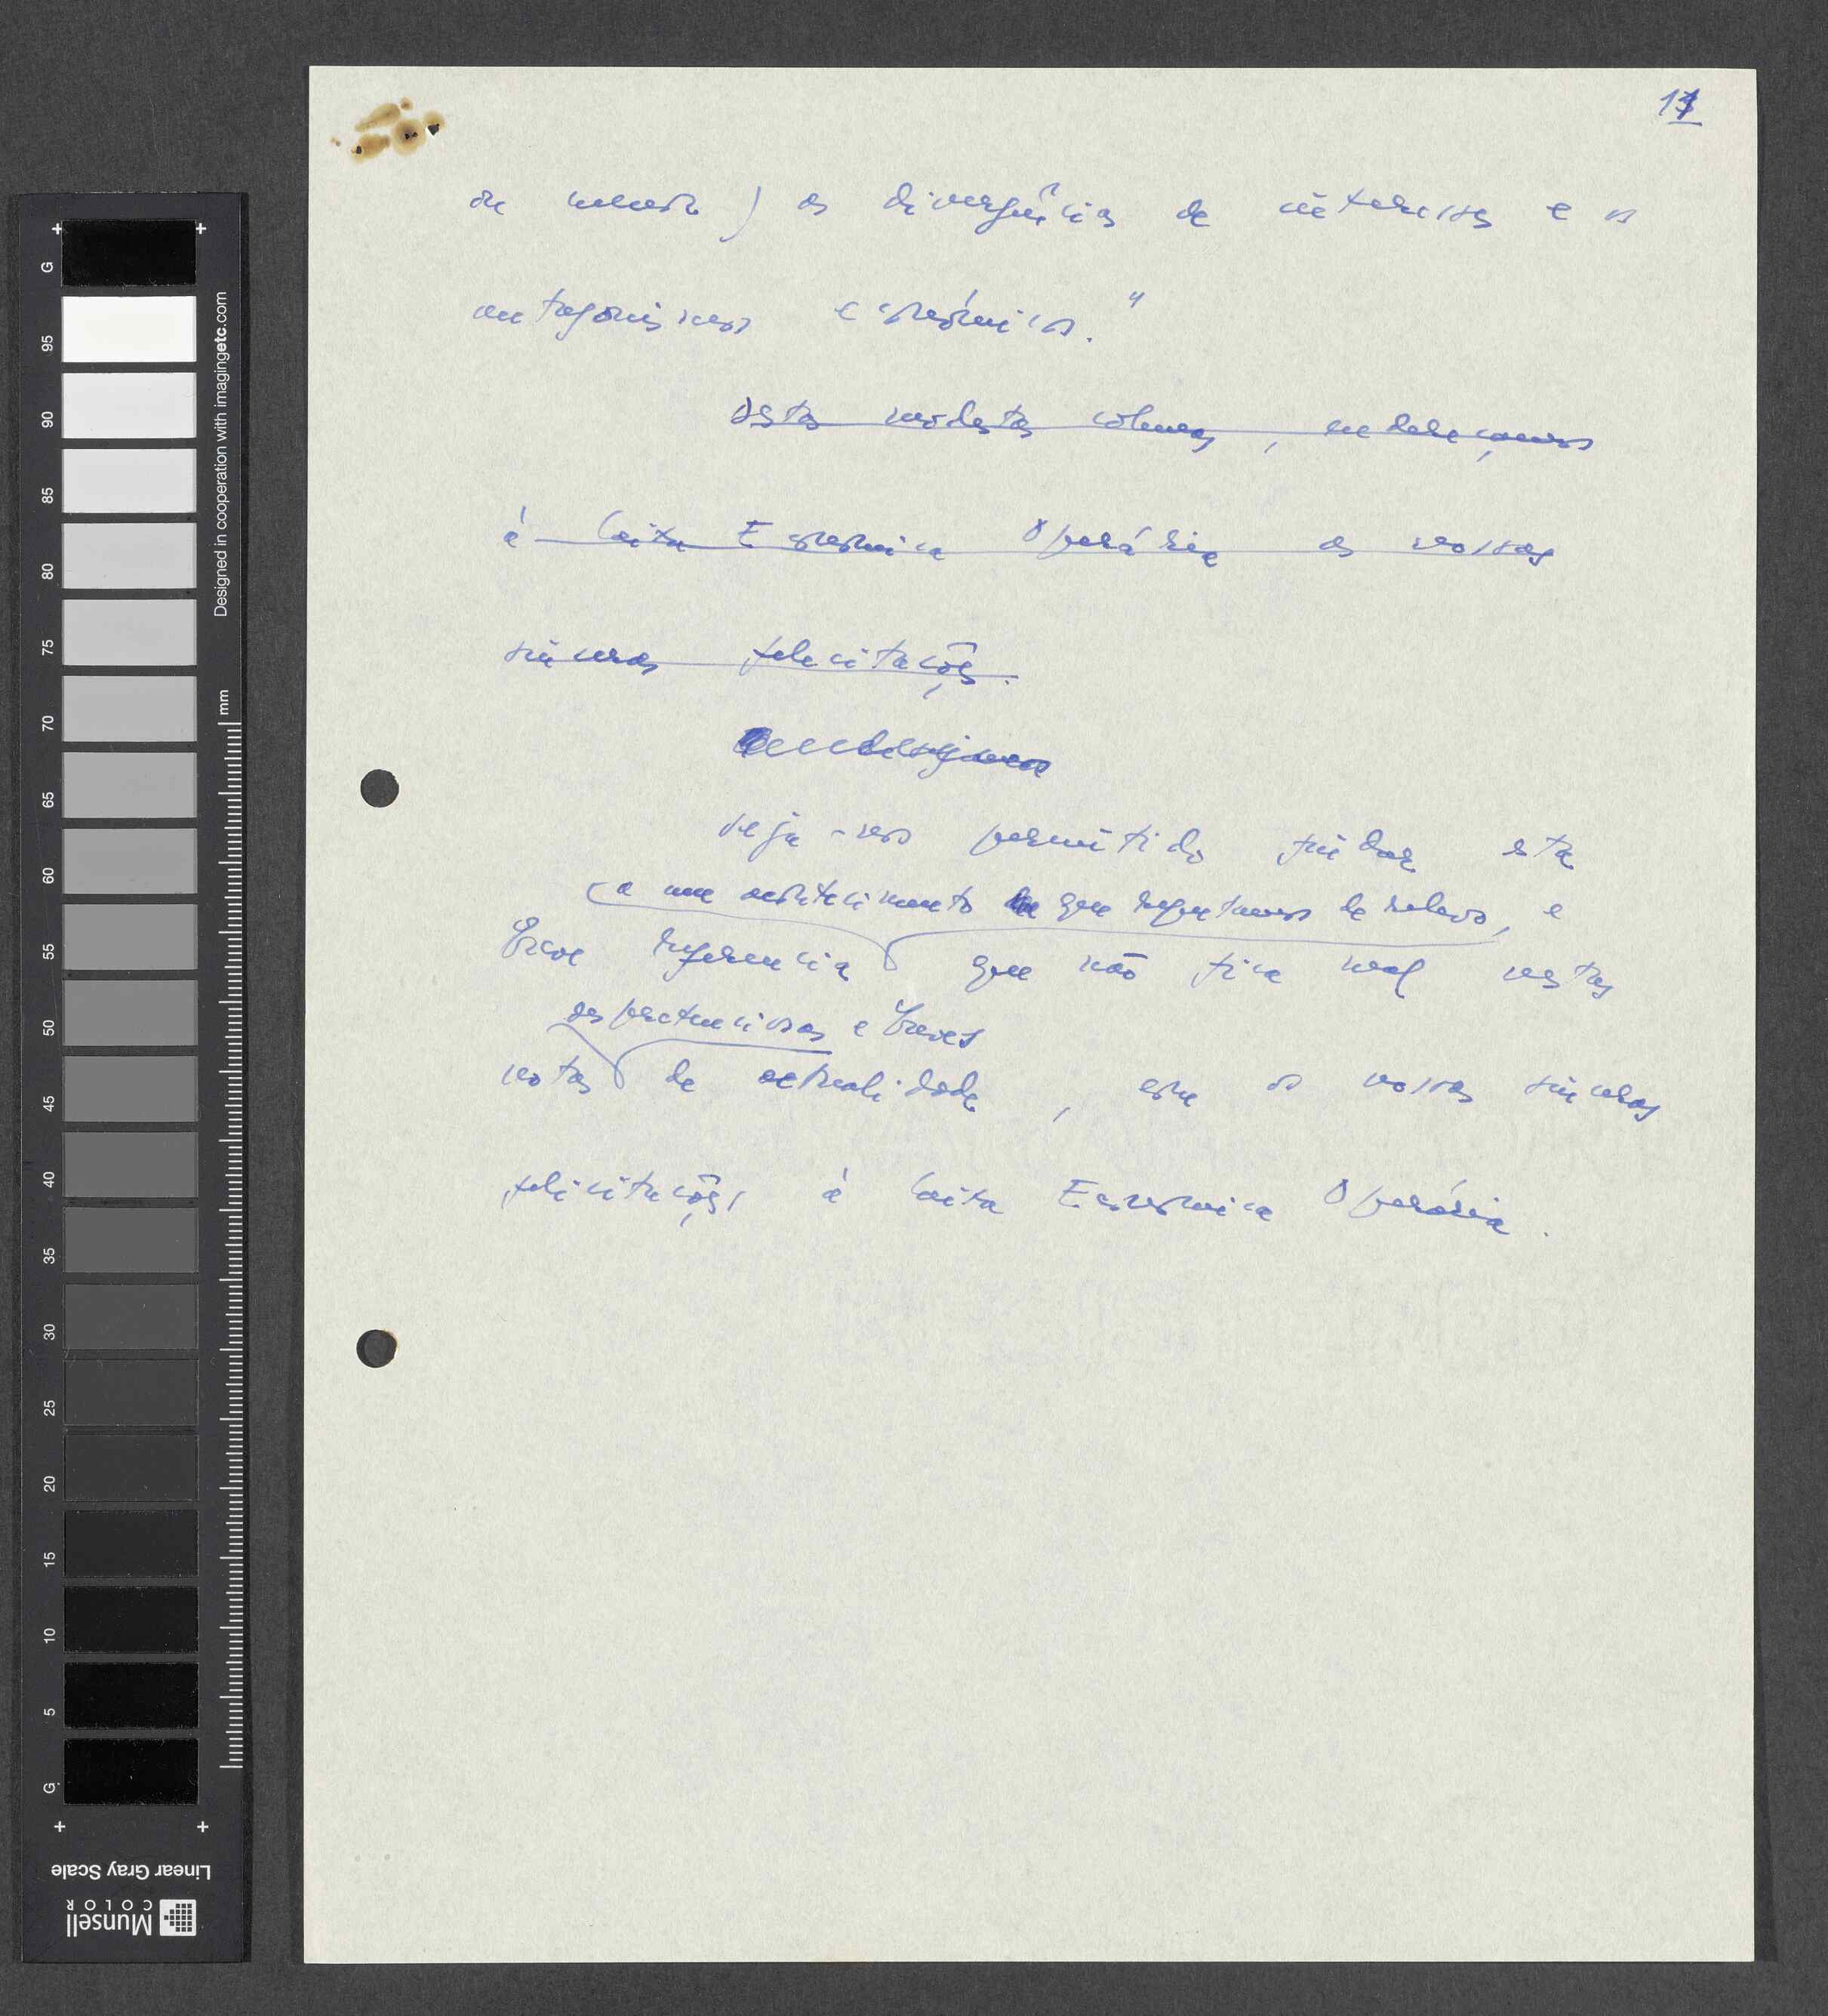 11
ou menos) as divergências de interesses e os
antagonismos económicos."
Destas modestas colunas, endereçamos
à Caixa Económica Operária as nossas
sinceras felicitações.
Seja-nos permitido findar esta
a um acontecimento que reputamos de relevo, e
breve referencia que não fica mal nestas
despretenciosas e breves
notas de actualidade, com as nossas sinceras
felicitações à Caixa Económica Operária.
G 95 90 85 80 75 70 65 60 55 50 45 40 35 30 25 20 15 10 5 G
mm
Designed in cooperation with imagingetc.com
Linear Gray Scale
Munsell
COLOR